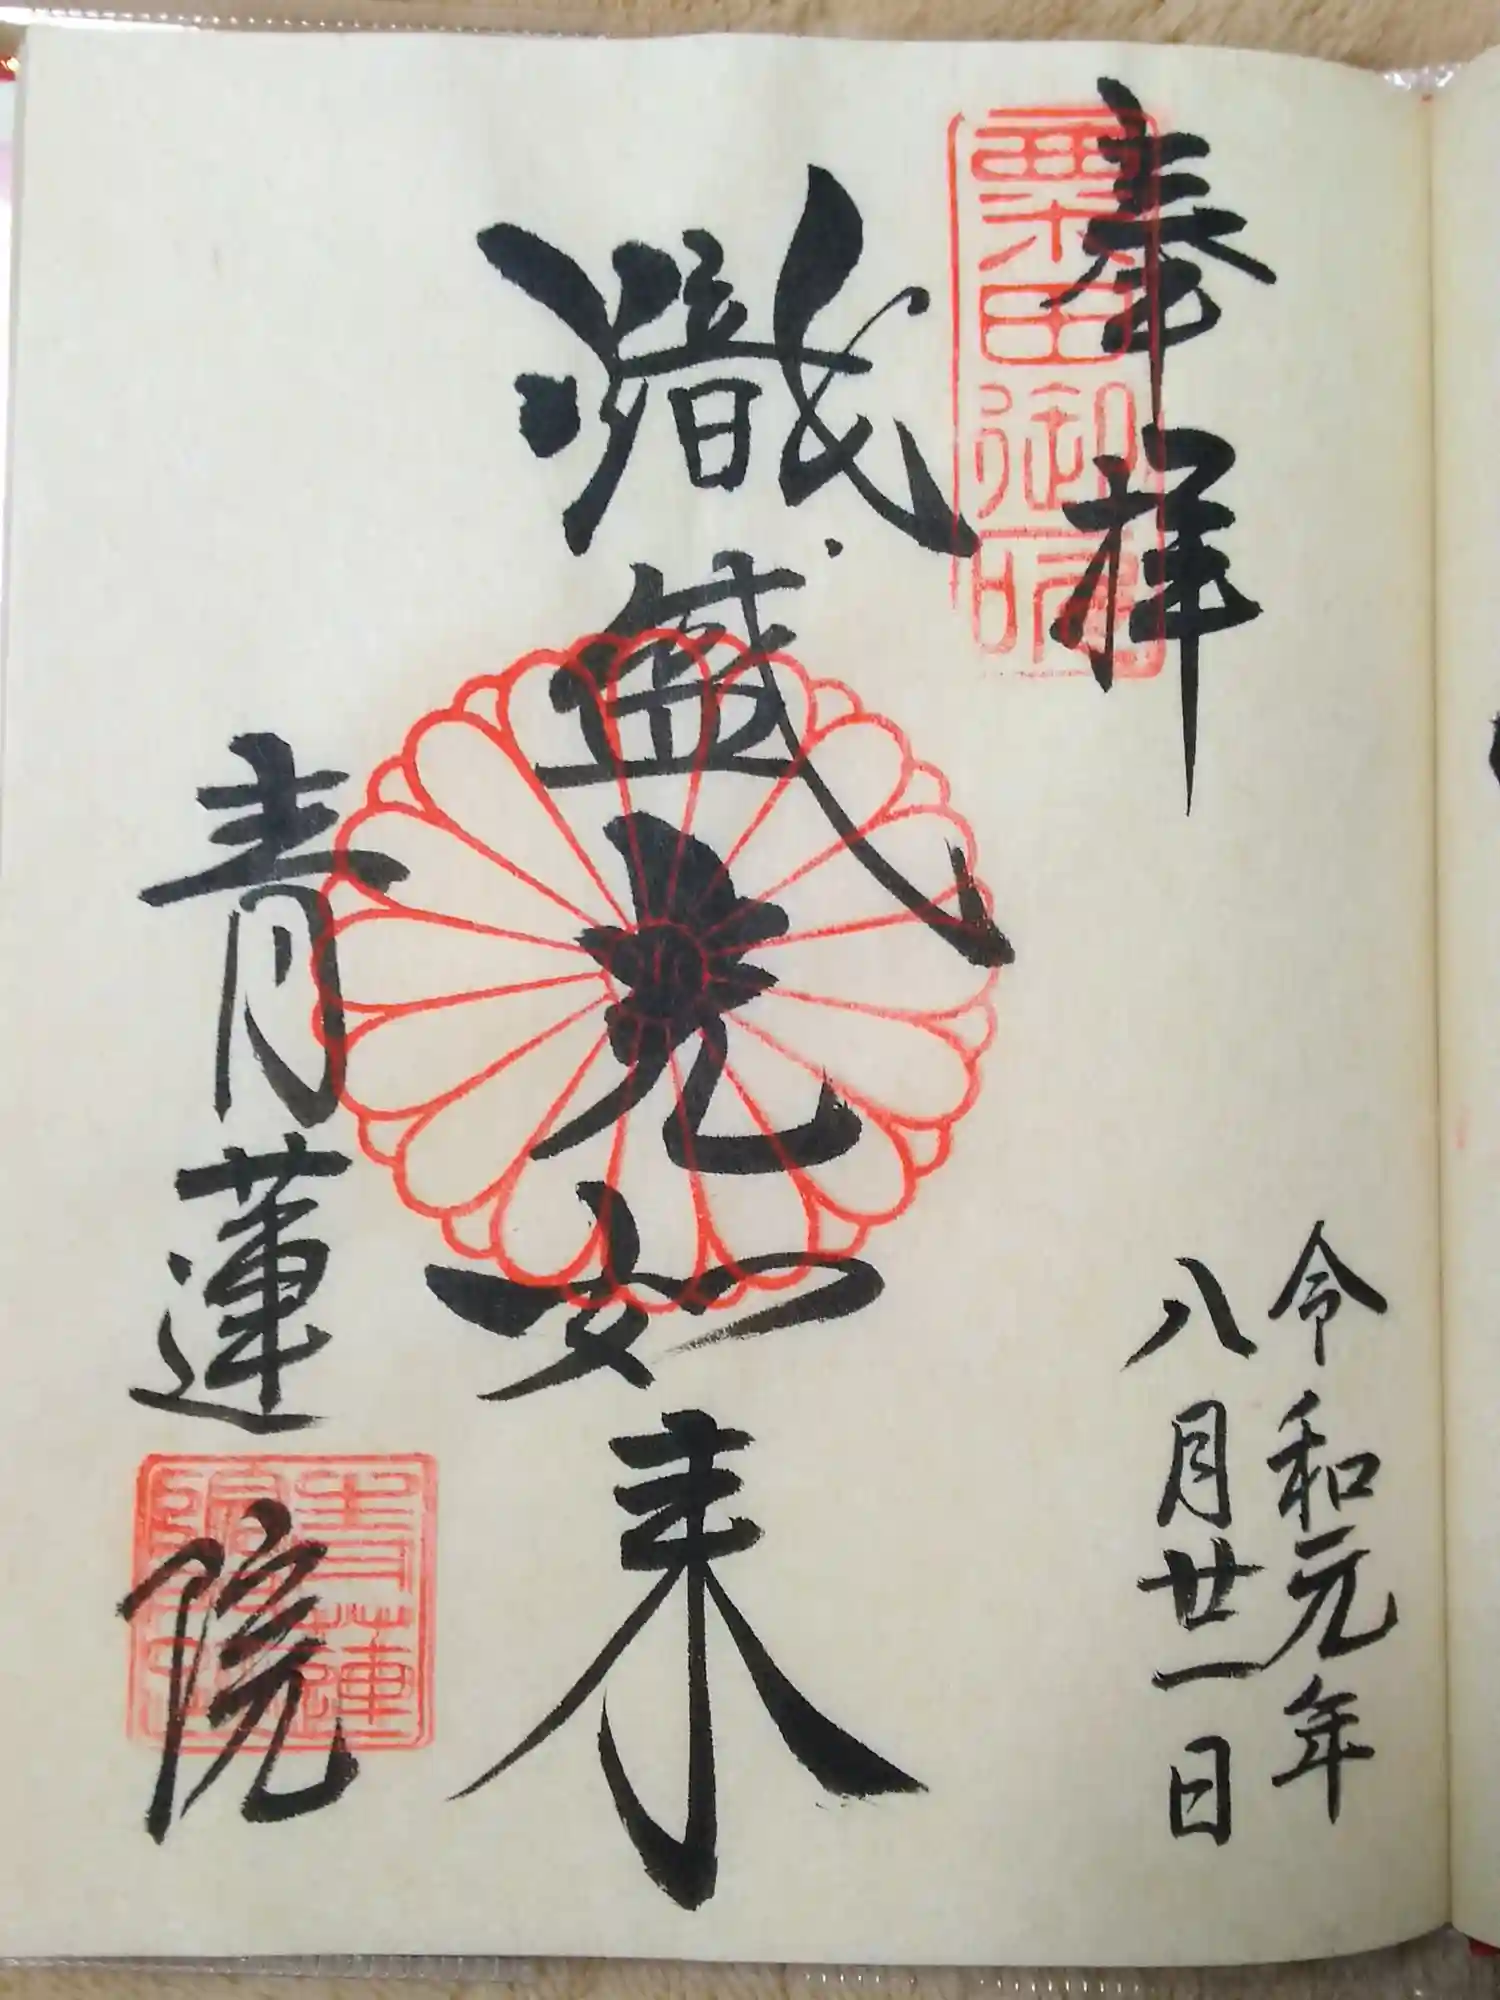 奉拝
粟田御所
令和元年
八月廿一日
熾盛光如来
青蓮院
青蓮